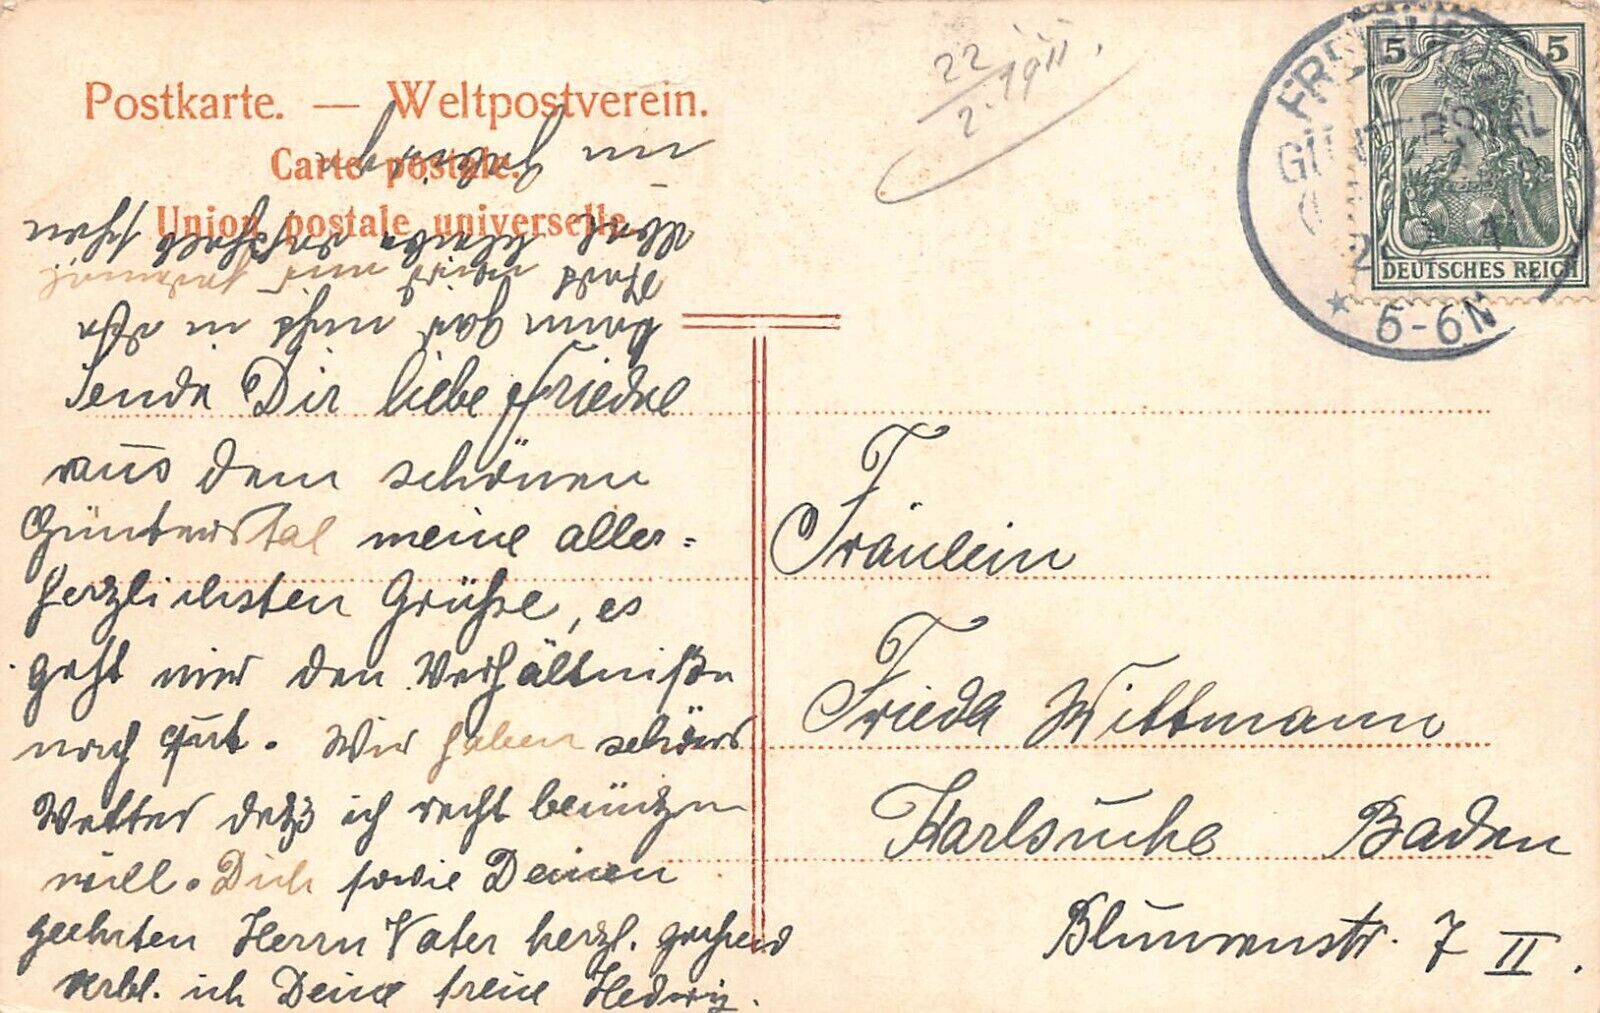 Postkarte. — Weltpostverein.
Carte postale.
Union postale universelle.
22/2. 1911.
5 5
DEUTSCHES REICH
5-6N
Sende Dir liebe Friedel
aus dem schönen
Günterstal meine aller=
herzlichsten Grüße, es
geht mir den Verhältniße
nach gut. Wir haben schöns
Wetter daß ich recht benützen
will. Dich sowie Deinen
geehrten Herrn Vater herzl. grüßend
verbl. ich Deine treue Hedwig.
Fräulein
Frieda Wittmann
Karlsruhe Baden
Blumenstr. 7 II.